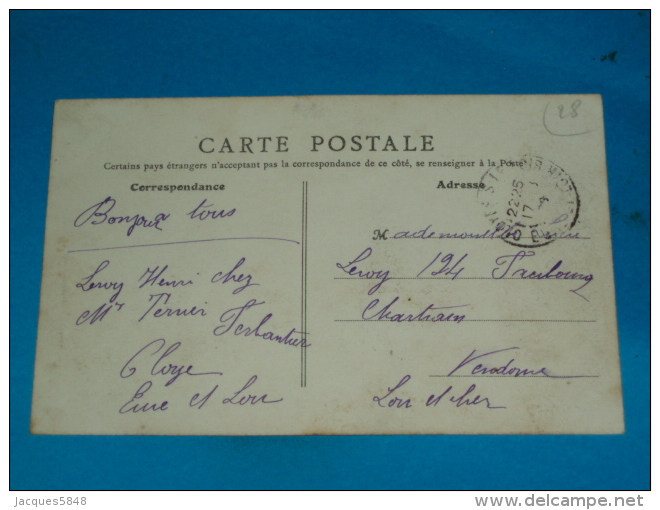 28
CARTE POSTALE
Certains pays étrangers n'acceptant pas la correspondance de ce côté, se renseigner à la Poste
Correspondance
Adresse
Bonjour a tous
Mademoiselle
Leroy Henri chez
Mr Ternier Ferblantier
Cloye
Eure et Loir
Leroy 124 Faubourg
Chartrain
Vendome
Loir et cher
Jacques5848
delcampe.net